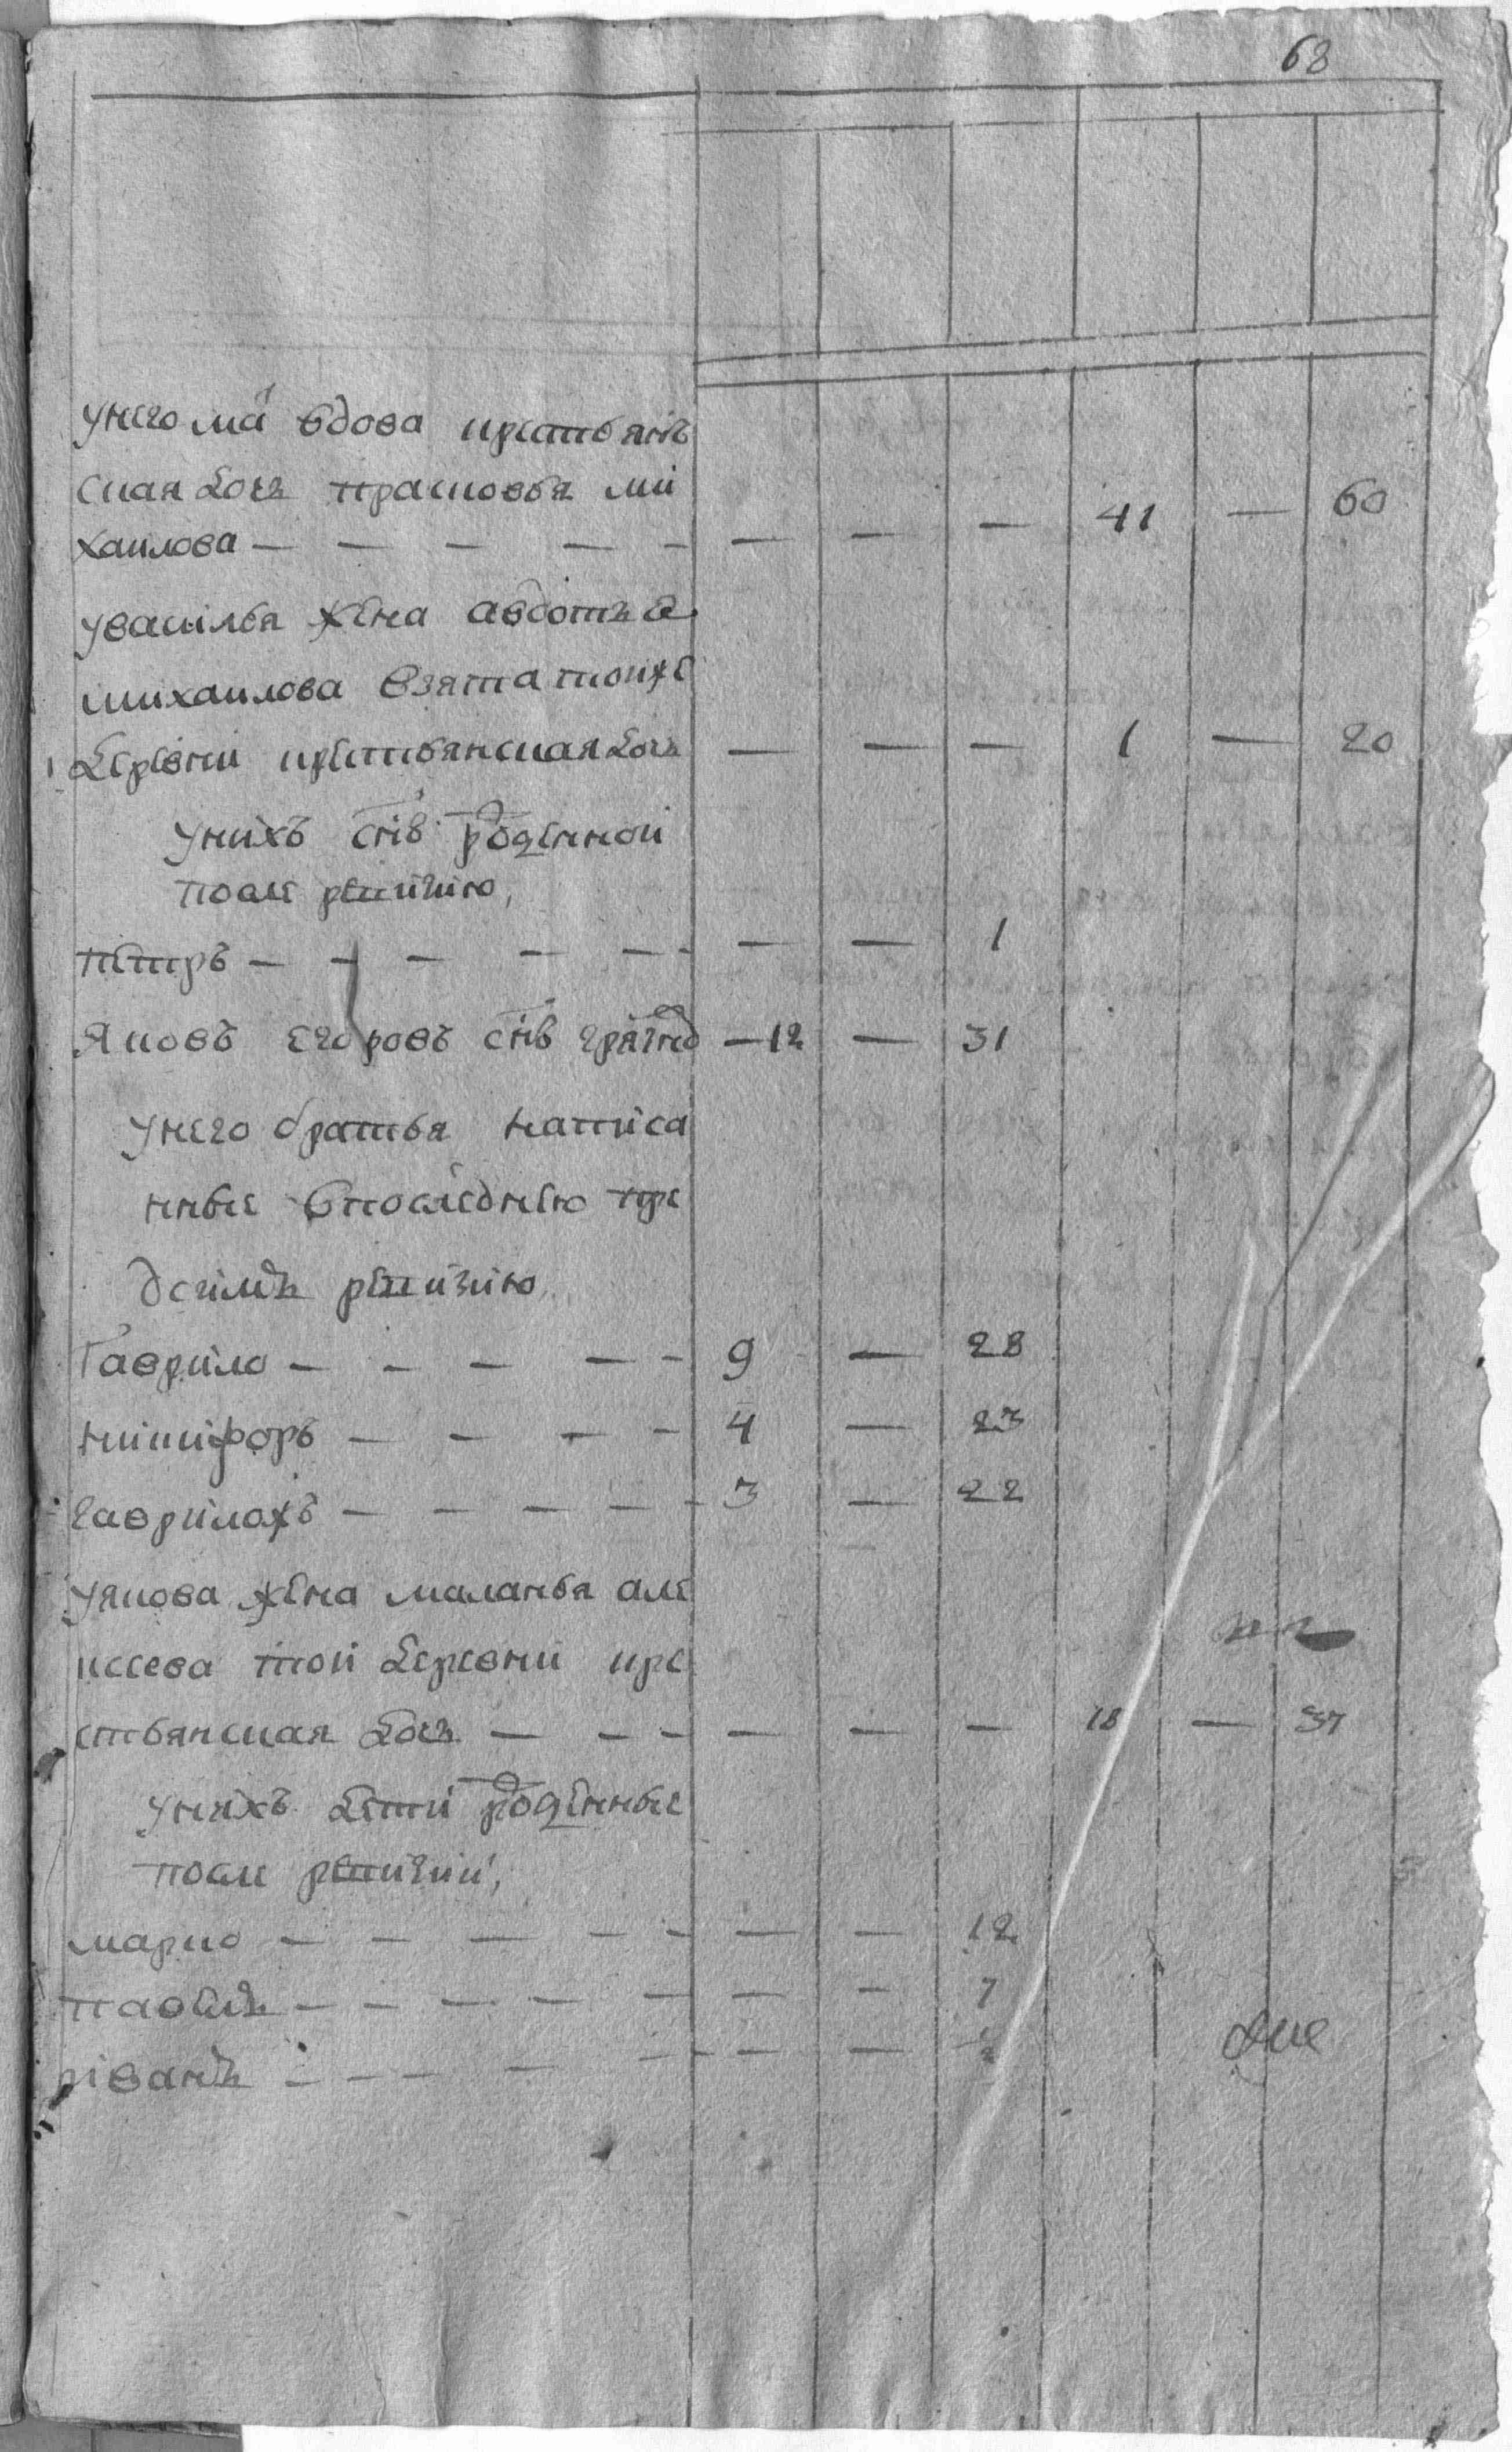 68
унего мат вдова крестьянъ
ская дочь прасковья ми
хаилова — — — — — — — — 41 — 60
увасилья жена авдотья
михаилова взята тоиже
деревни крестьянская дочь — — — 1 — 20
унихъ снъ рожденной
после ревизiю,
петръ — — — — — — — 1
Яковъ егоровъ снъ — 12 — 31
унего братья написа
нные впоследнею пре
дсимъ ревизiю
Гаврило — — — — — 9 — 28
никифоръ — — — — 4 — 23
гавриложъ — — — — — 3 — 22
уякова жена маланья але
ксеева тои деревни кре
стьянская дочь — — — — — — 18 — 37
унихъ дети рожденные
после ревизии,
марко — — — — — — — 12
павелъ — — — — — — — 7
иванъ — — — — — — —